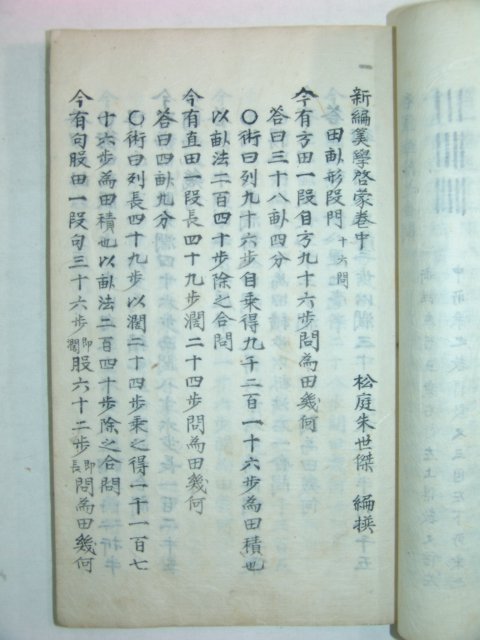 新編筭學啓蒙卷中　松庭朱世傑　編撰
田畝形段門　十六問
今有方田一段自方九十六步問為田幾何
答曰三十八畝四分
〇術曰列九十六步自乘得九千二百一十六步為田積也
以畝法二百四十步除之合問
今有直田一段長四十九步濶二十四步問為田幾何
答曰四畝九分
〇術曰列長四十九步以濶二十四步乘之得一千一百七
十六步為田積也以畝法二百四十步除之合問
今有句股田一段句三十六步即濶股六十二步即長問為田幾何